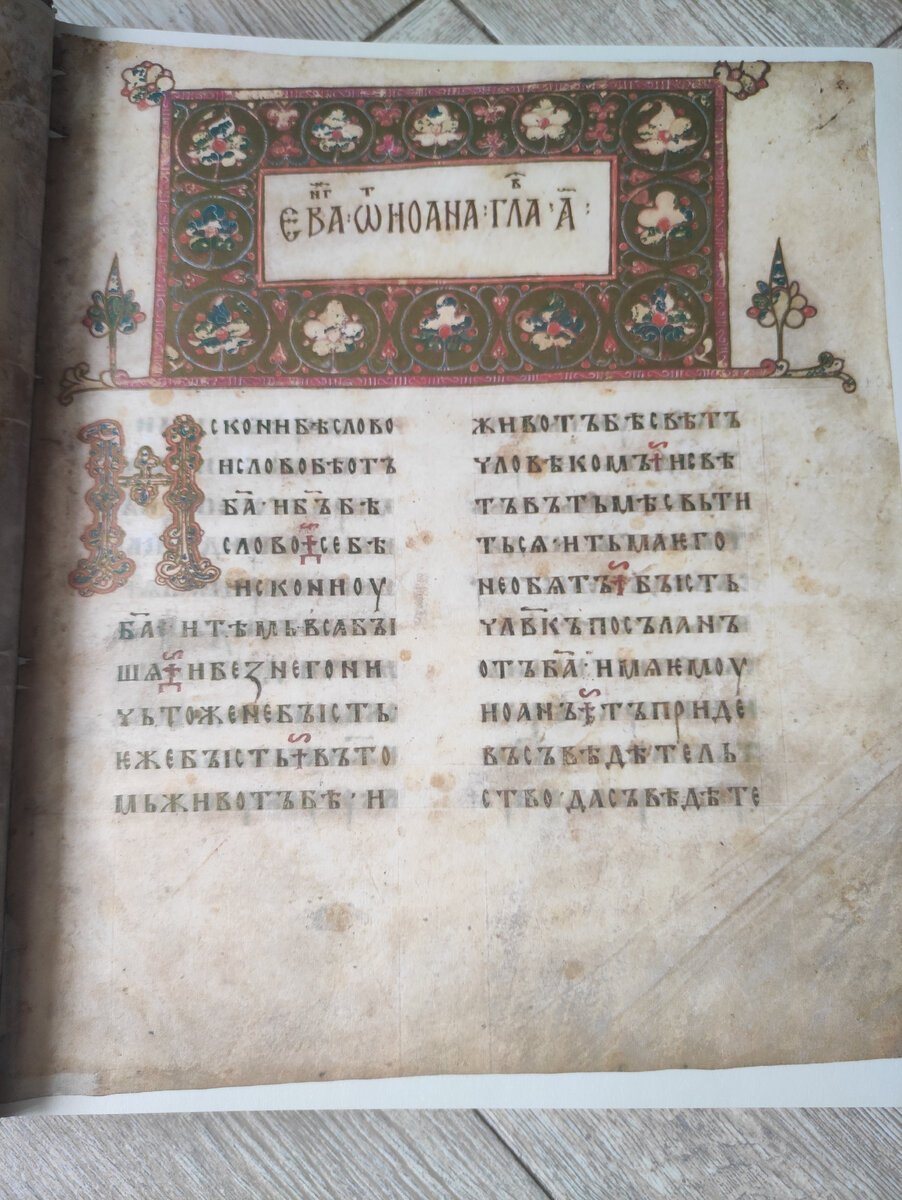 ЕВА҃НГ · Ѡ҃Т ИОАНА : ГЛАВ҃ · А҃ :
Искони бѣ слово
и слово бѣ отъ
ба҃ · и бъ҃ бѣ
слово · се бѣ
искони оу
ба҃ · и тѣмь в̇ся бꙑ
шѧ · и без него ни
чьтоже не бꙑсть ·
ѥже бꙑсть · въ то
мь животъ бѣ · и
животъ бѣ свѣтъ
чловѣкомъ · и свѣ
тъ въ тьмѣ свьти
тьсѧ · и тьма ѥго
не обѧтъ · бꙑсть
члв҃къ посъланъ
отъ ба҃ · имѧ ѥмоу
иоанъ · тъ приде
въ съвѣдѣтель
ство · да съвѣдѣте